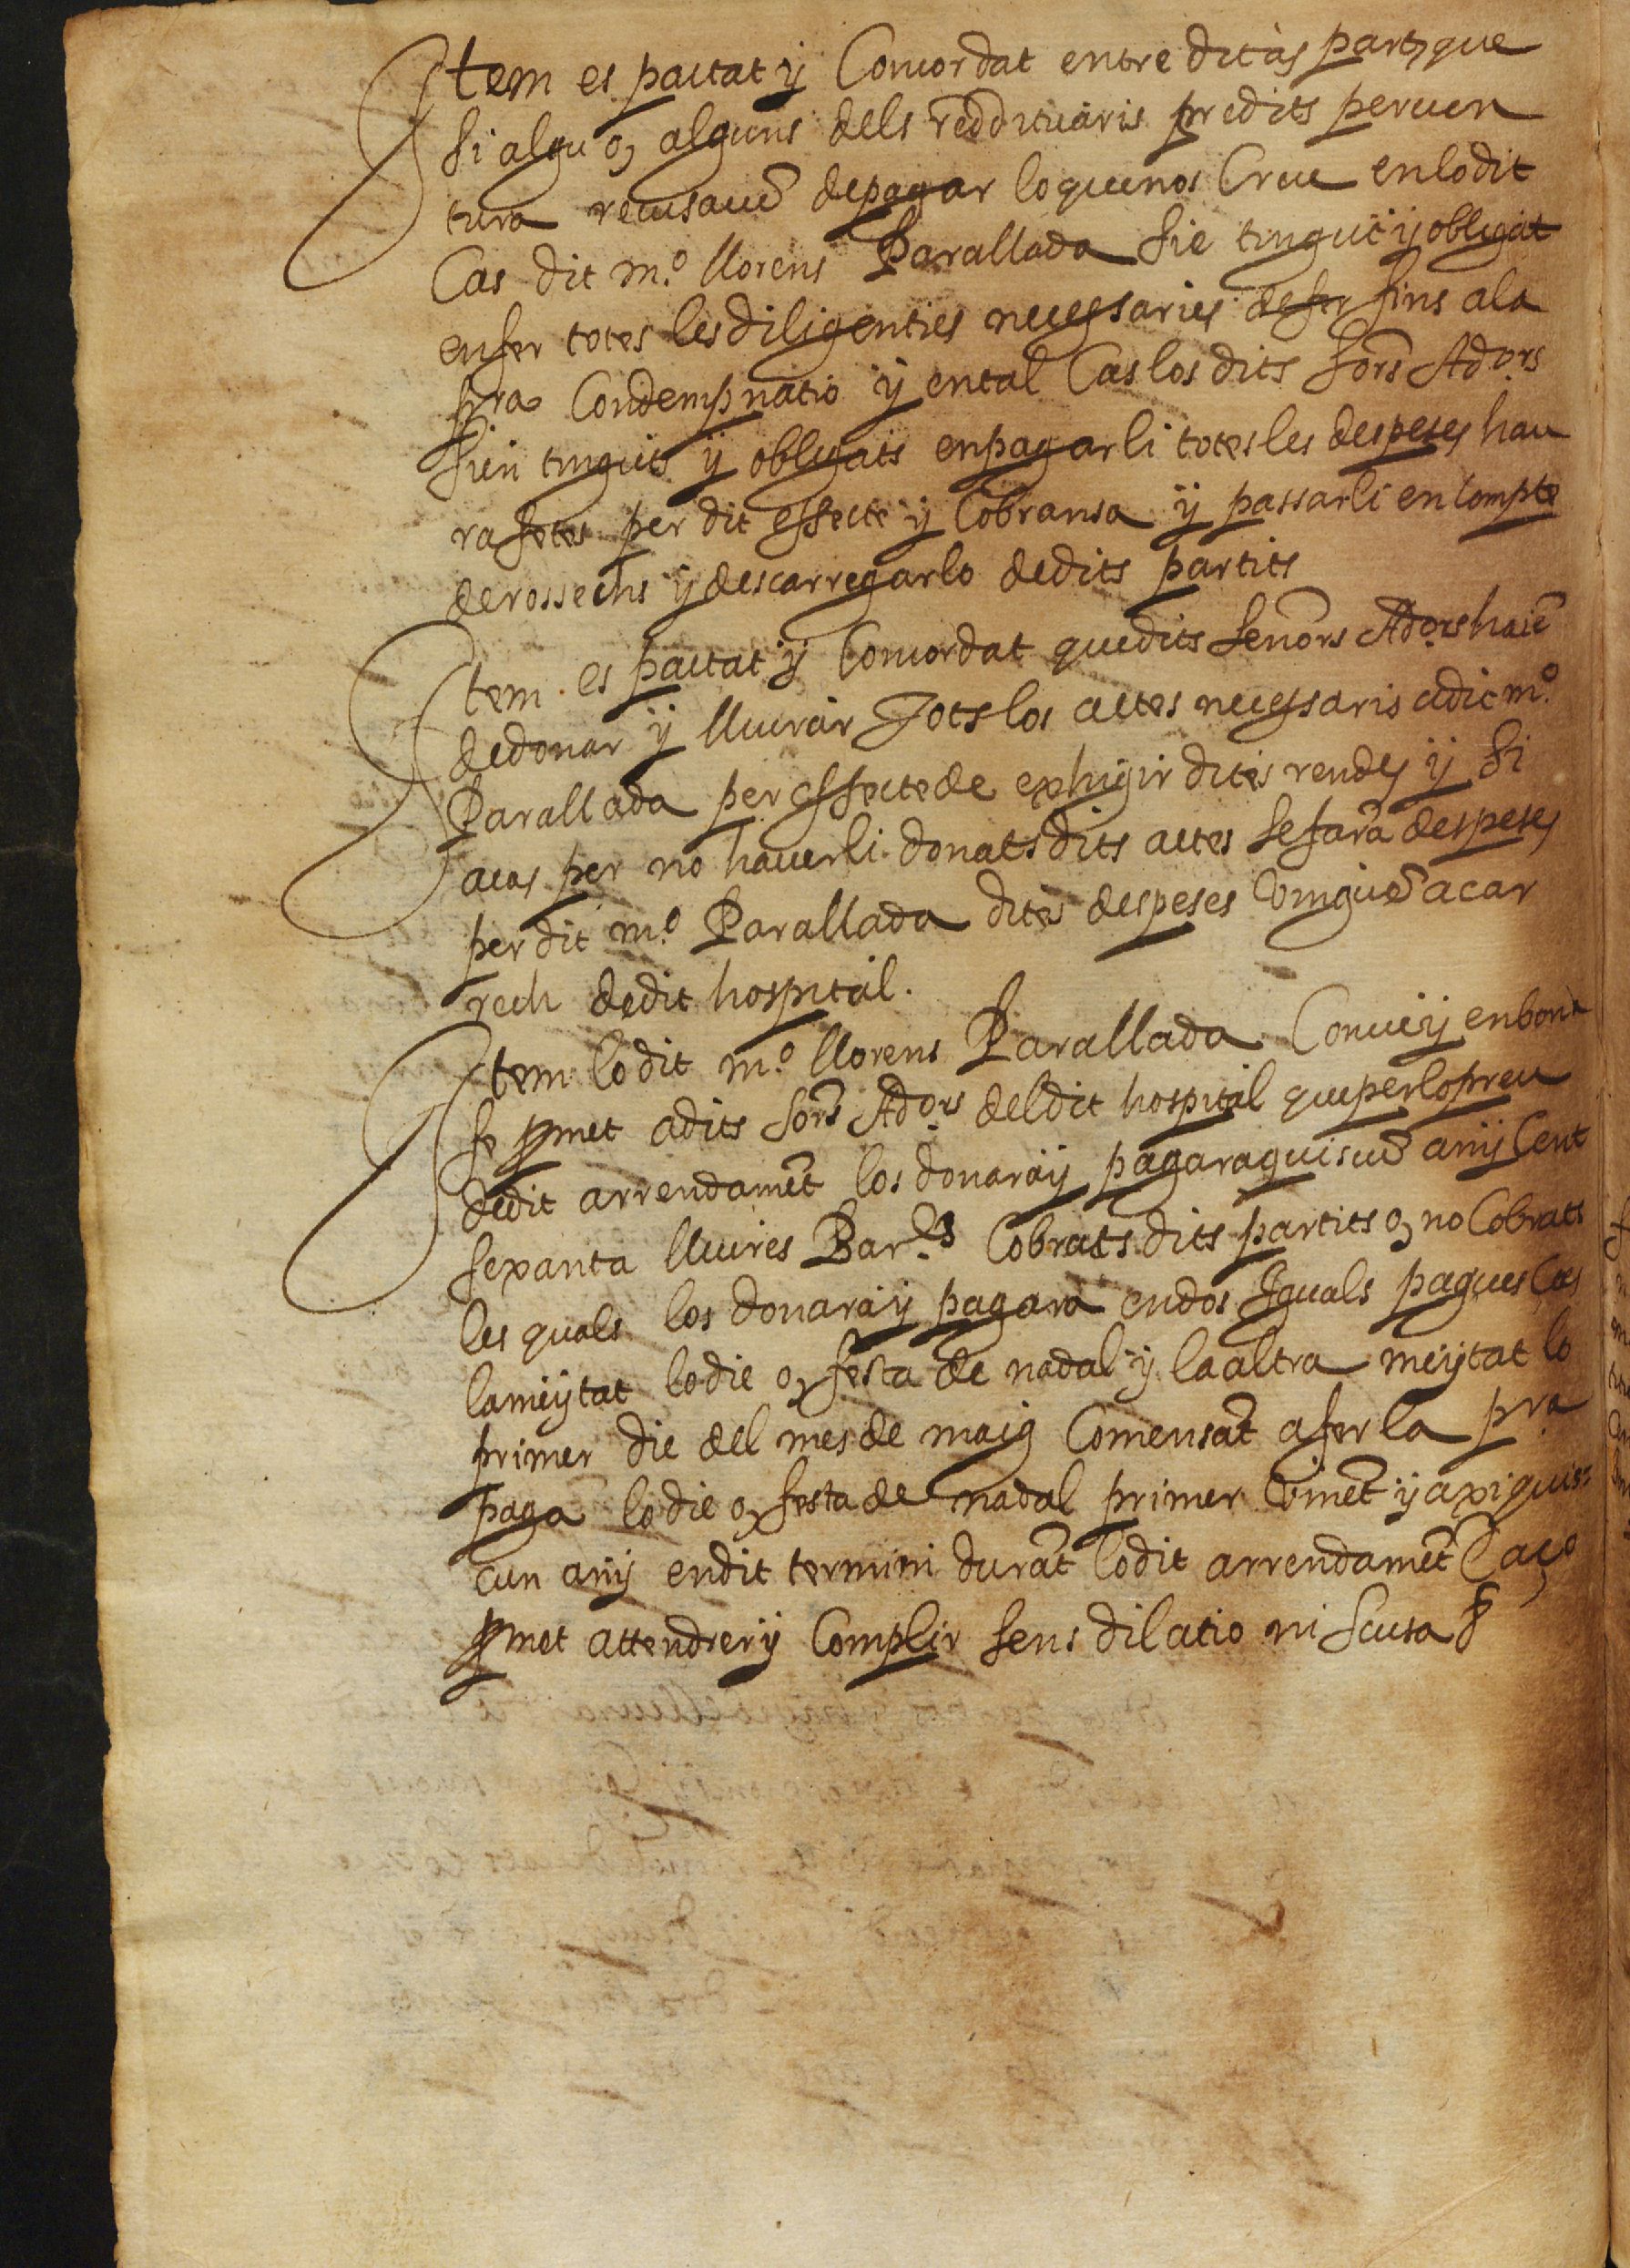 Item es pactat ÿ Concordat entre ditas parts que
si algu o, alguns dels reddituaris predits perven
tura recusavē de pagar lo que nos Creu en lo dit
Cas dit m.º llorens Parallada sie tingut ÿ obligat
en fer totes les diligenties necessaries de fer fins a la
pra Condempnatio ÿ en tal Cas los dits sors Adors
sien tinguts ÿ obligats en pagarli totes les despeses hau
ra fetes per dit effecte ÿ Cobransa ÿ passarli en Compte
de rossechs ÿ descarregarlo de dits partits
Item es pactat ÿ Concordat que dits senors Adors hauē
de donar ÿ lliurar Tots los actes necessaris a dit m.º
Parallada per effecte de exhigir dites rendes ÿ si
acas per no haverli donats dits actes se fara despeses
per dit m.º Parallada dites despeses vinguē a car
rech de dit hospital.
Item lo dit m.º llorens Parallada Conve ÿ en bona
fe pmet a dits sors Adors del dit hospital que per lo preu
de dit arrendamēt los donara ÿ pagara quiscū anÿ Cent
sexanta lliures Bar.ˢ Cobrats dits partits o, no Cobrats
les quals los donara ÿ pagara en dos Iguals pagues ços
la meÿtat lo die o, festa de nadal ÿ la altra meÿtat lo
primer die del mes de maig Comensāt a fer la pra
paga lo die o, festa de nadal primer vinēt ÿ axi quis=
cun anÿ en dit termini durāt lo dit arrendamēt E aço
pmet attendrer ÿ Complir sens dilatio ni scusa